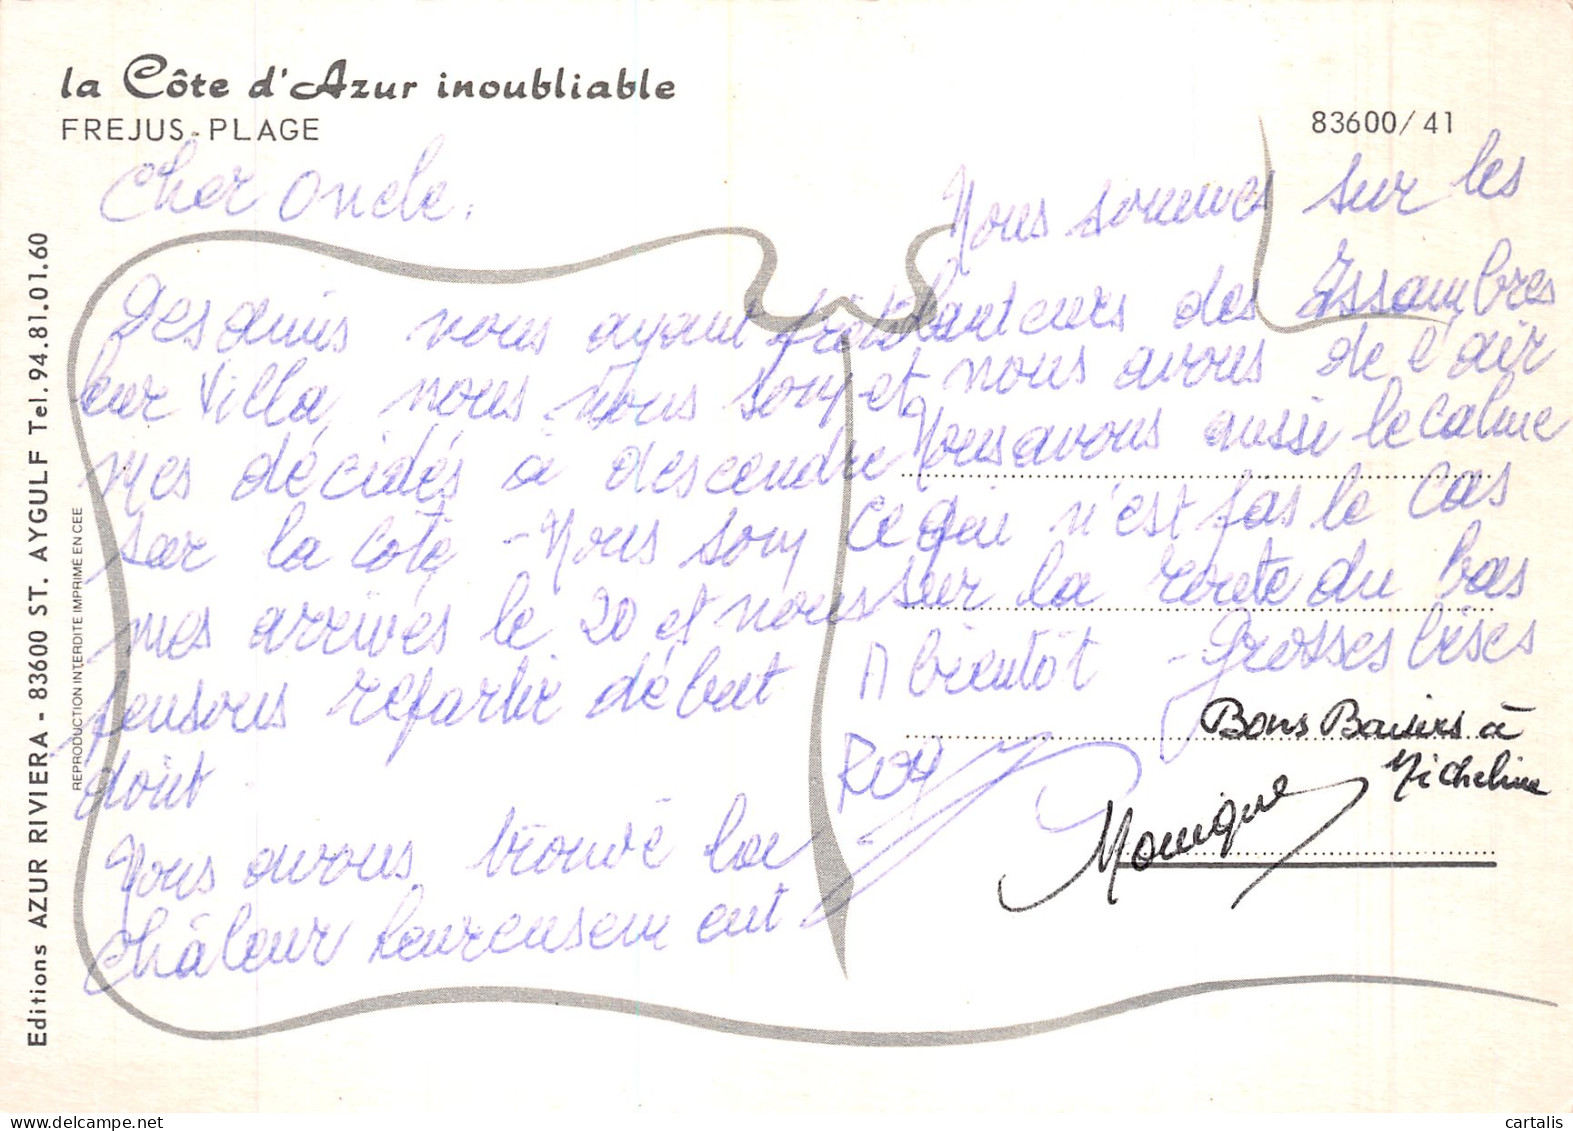 la Côte d'Azur inoubliable
FREJUS-PLAGE
83600/41
Cher Oncle.
Des amis nous ayant prêté
leur Villa, nous nous som
mes décidés à descendre
sur la Cote - Nous som
mes arrivés le 20 et nous
pensons repartir début
Août
Nous avons trouvé la
châleur heureusement
Nous sommes sur les
hauteurs des Issambres
et nous avons de l'air
Nous avons aussi le calme
Ce qui n'est pas le cas
sur la route du bas
A bientôt - Grosses bises
Bons Baisers à
Micheline
Roy
Monique
Editions AZUR RIVIERA - 83600 ST. AYGULF Tel. 94.81.01.60
REPRODUCTION INTERDITE IMPRIME EN CEE
cartalis